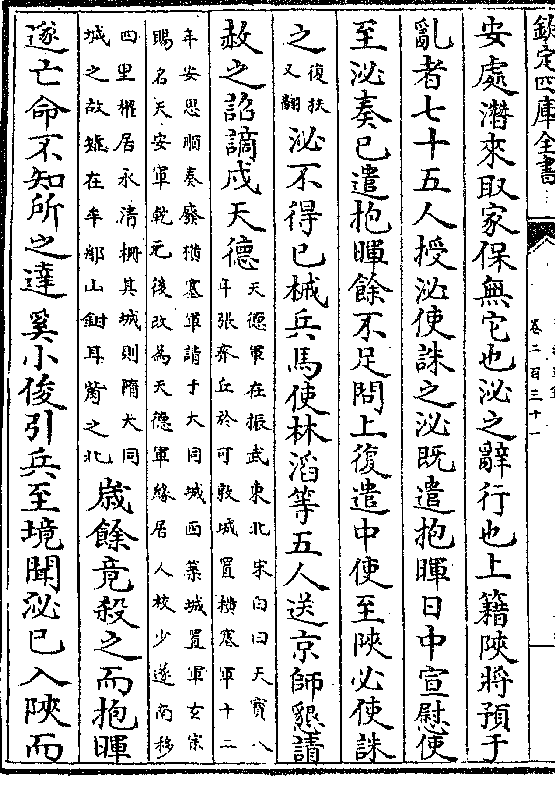 欽定四庫全書
卷二百三十一
安處潛來取家保無它也泌之辭行也上籍陜將預于
亂者七十五人授泌使誅之泌既遣抱暉日中宣慰使
至泌奏已遣抱暉餘不足問上復遣中使至陜必使誅
之復扶又翻泌不得已械兵馬使林滔等五人送京師懇請
赦之詔謫戍天德天德軍在振武東北宋白曰天寳八年張齊丘於可敦城置橫塞軍十二
年安思順奏廢橫塞軍請于大同城西築城置軍玄宗賜名天安軍乾元後改為天德軍緣居人較少遂南移
四里權居永清柵其城則隋大同城之故墟在牟郍山鉗耳觜之北歳餘竟殺之而抱暉
遂亡命不知所之達奚小俊引兵至境聞泌已入陜而